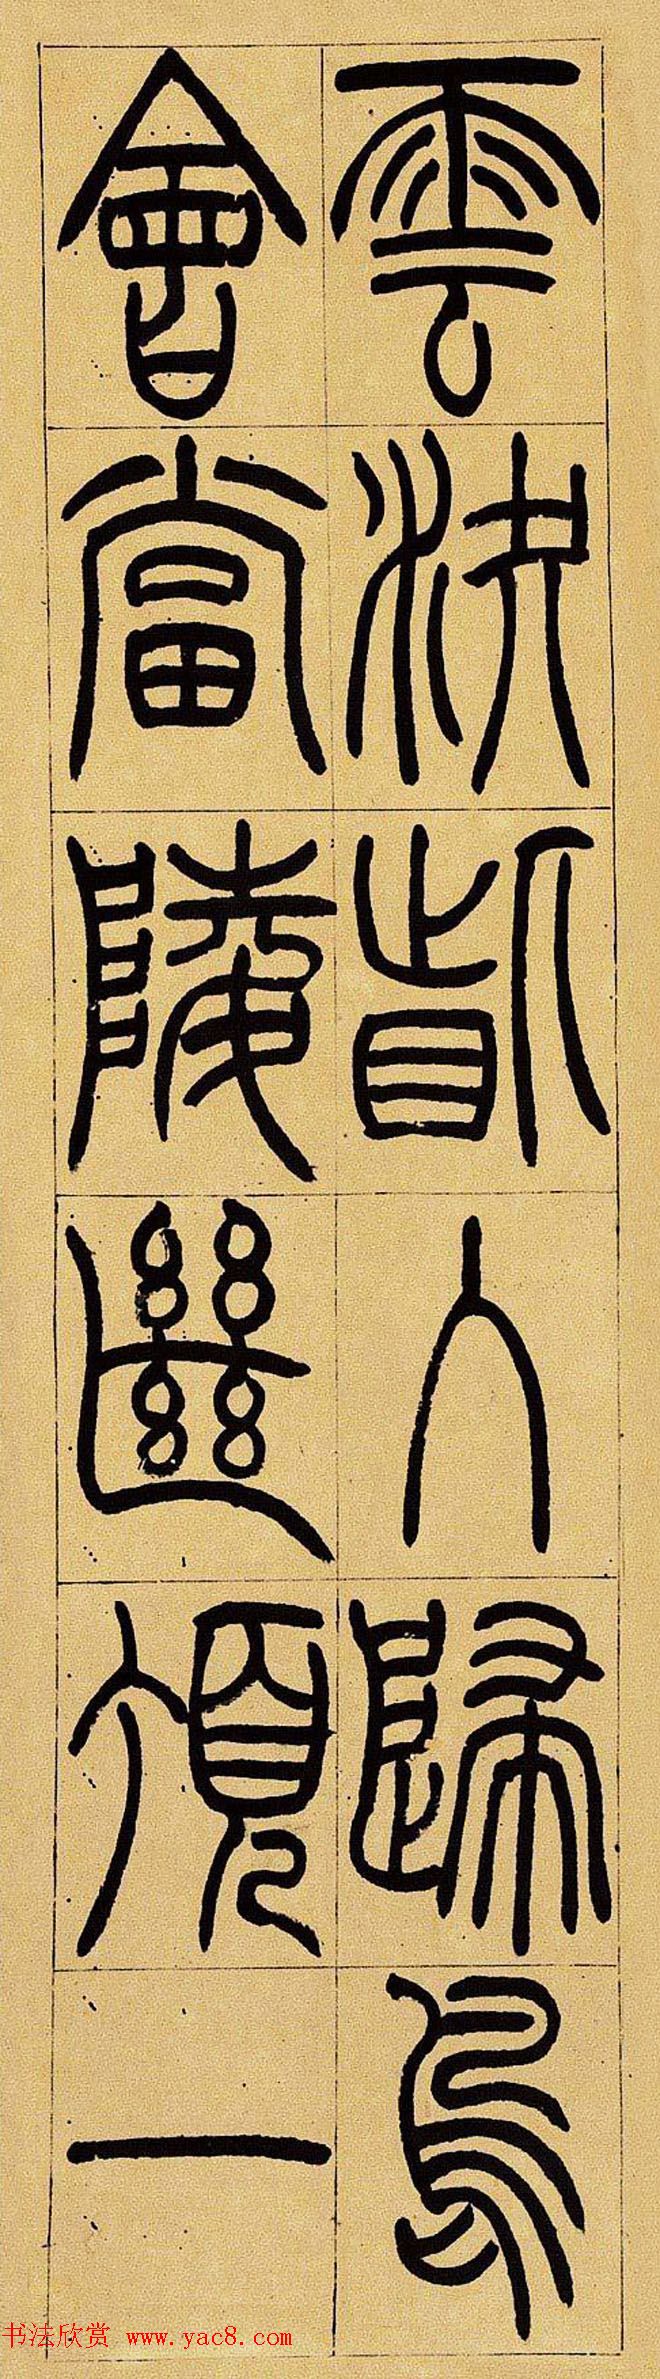 雲決眥入歸鳥
會當陵絕頂一
书法欣赏 www.yac8.com